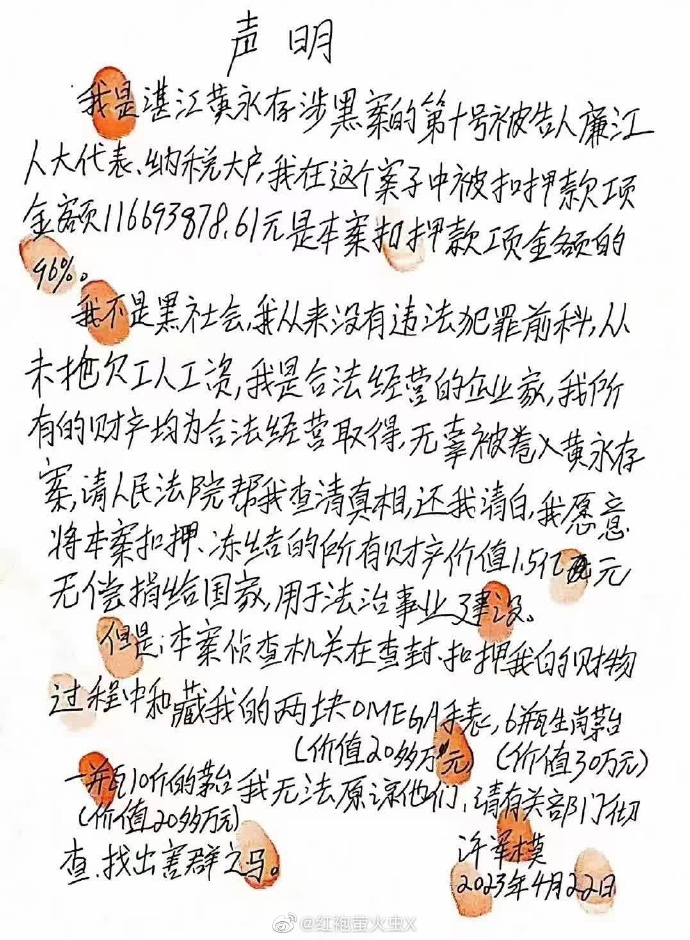 声明
我是湛江黄永存涉黑案的第十号被告人廉江
人大代表、纳税大户,我在这个案子中被扣押款项
金额116693878.61元是本案扣押款项金额的
96%。
我不是黑社会,我从来没有违法犯罪前科,从
未拖欠工人工资,我是合法经营的企业家,我所
有的财产均为合法经营取得,无辜被卷入黄永存
案,请人民法院帮我查清真相,还我清白,我愿意
将本案扣押、冻结的所有财产价值1.5亿元
无偿捐给国家,用于法治事业建设。
但是:本案侦查机关在查封、扣押我的财物
过程中私藏我的两块OMEGA手表,6瓶生肖茅台
(价值20多万元) (价值30万元)
一瓶10斤的茅台我无法原谅他们,请有关部门彻
(价值20多万元)
查、找出害群之马。
许军模
2023年4月22日
@红袍萤火虫X